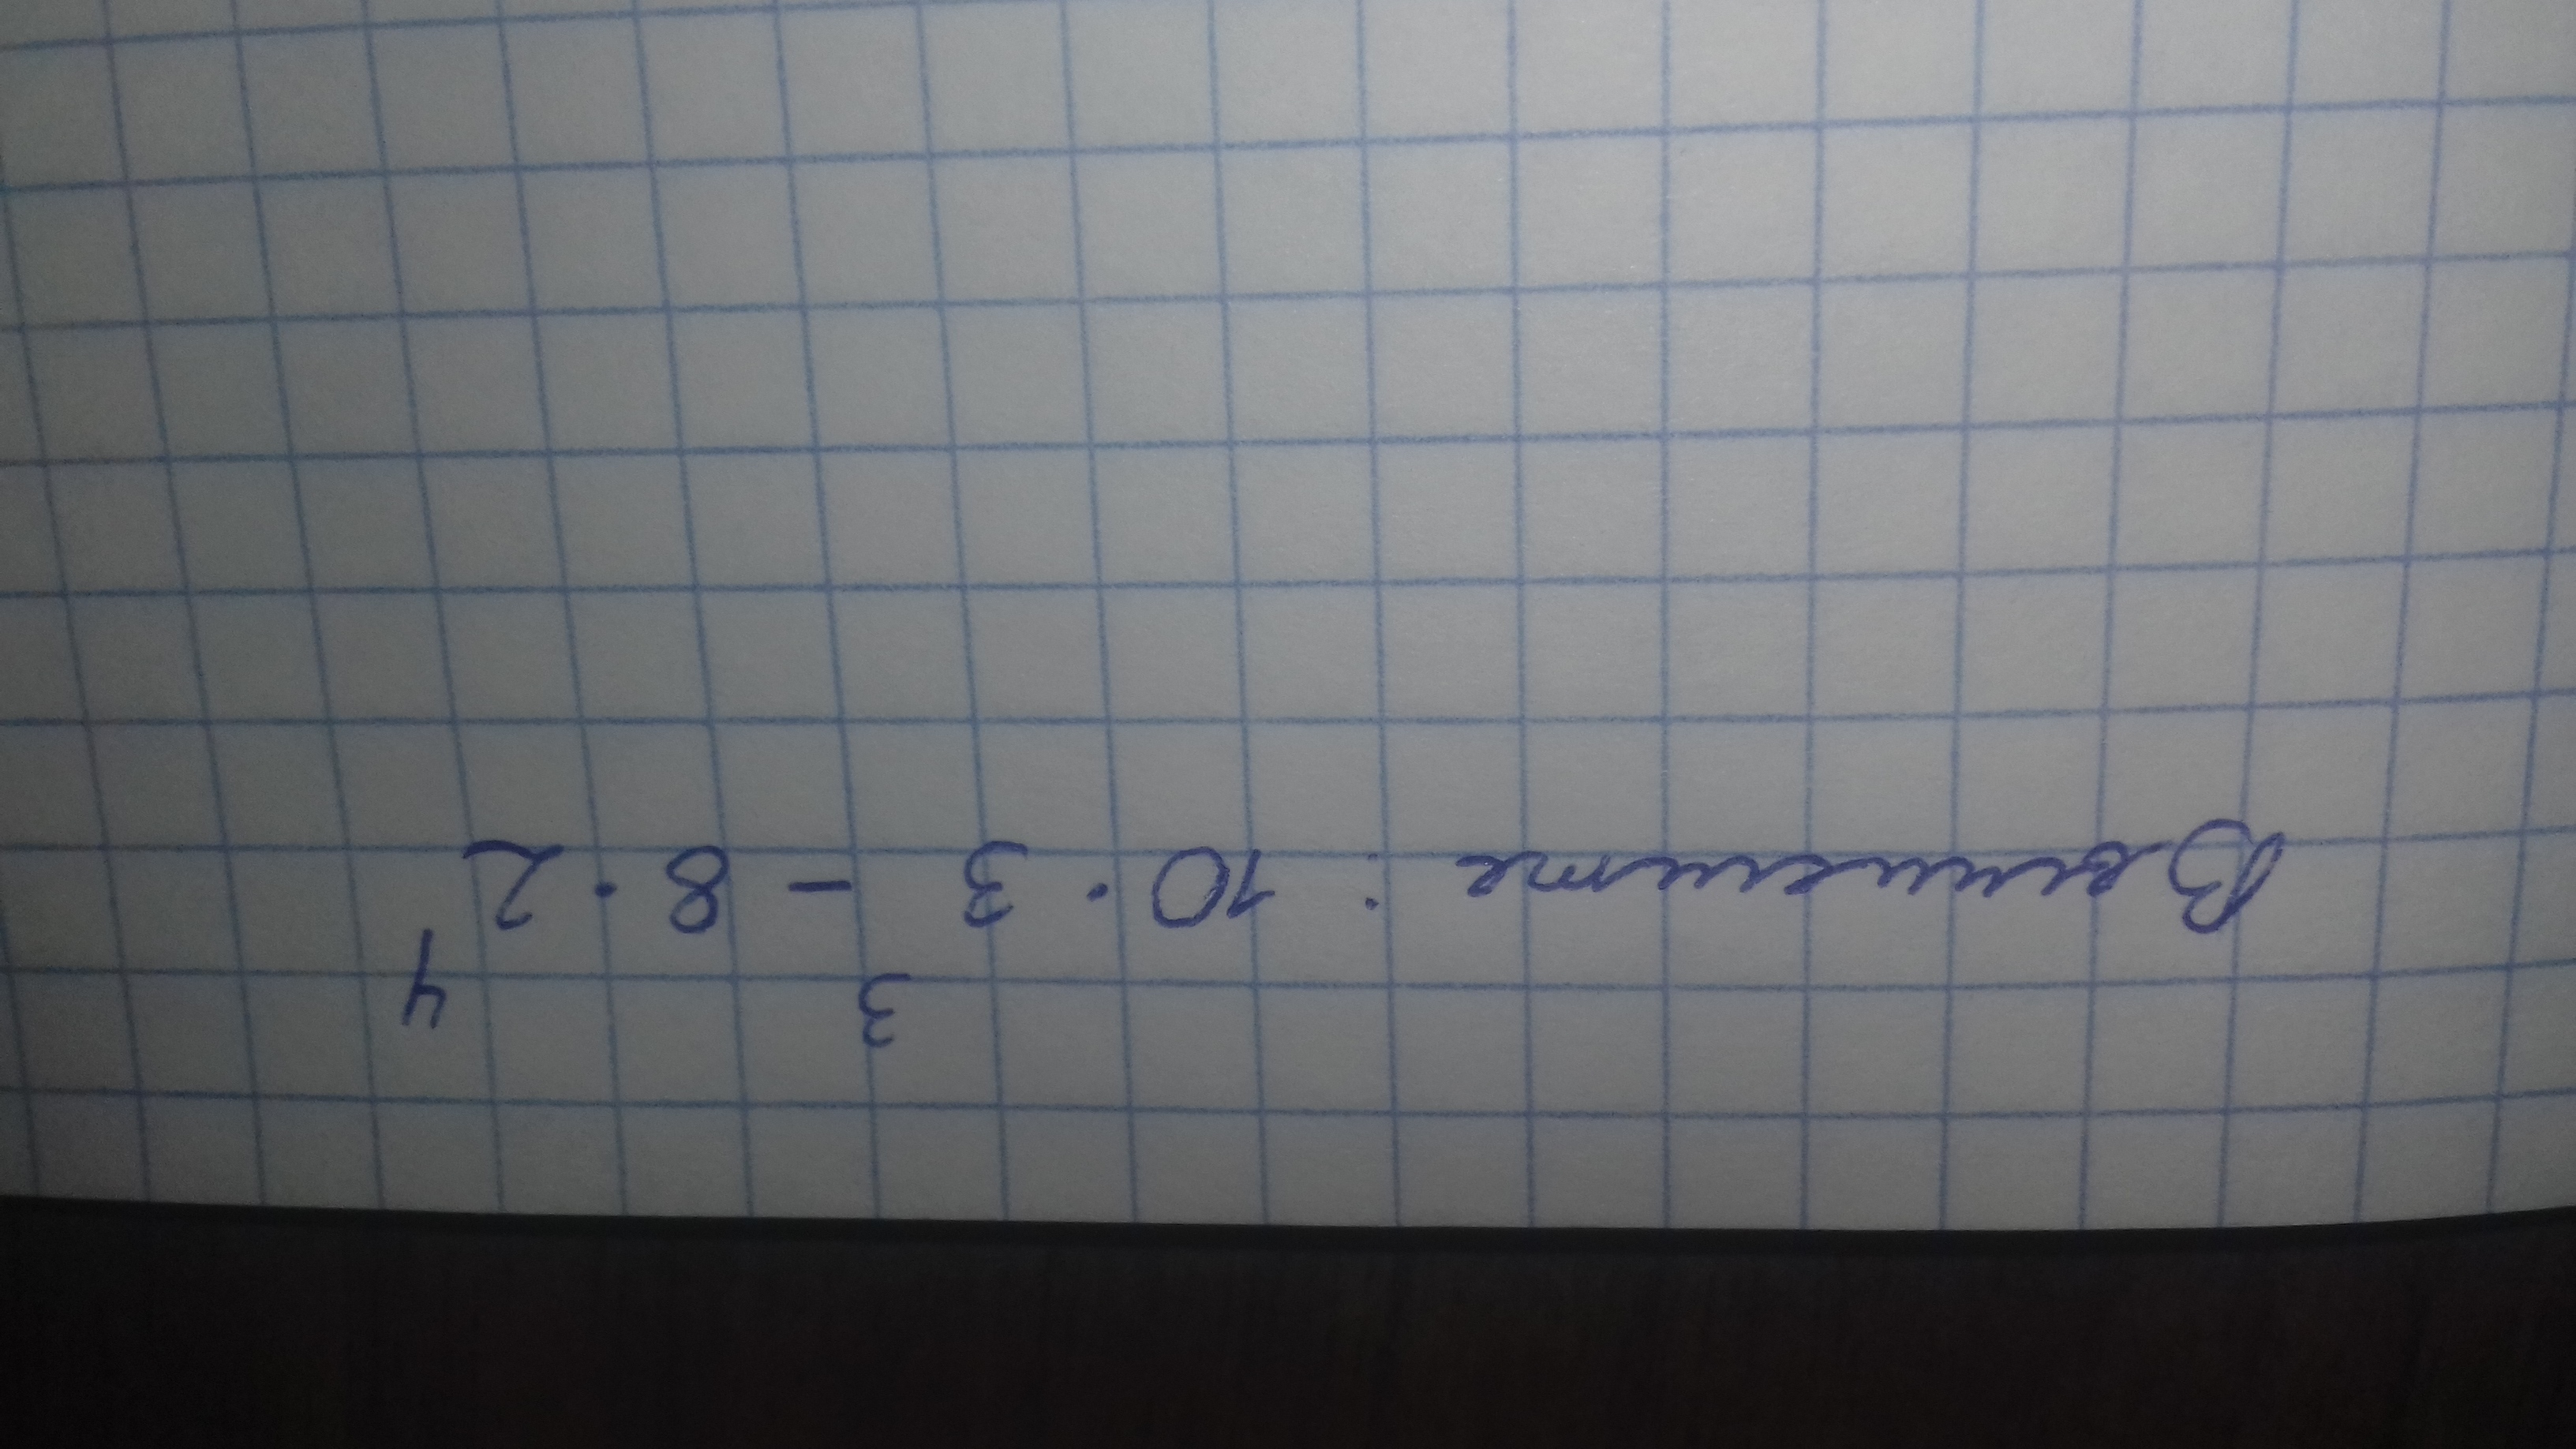 Вычислите : 10 · 3³ - 8 · 2⁴